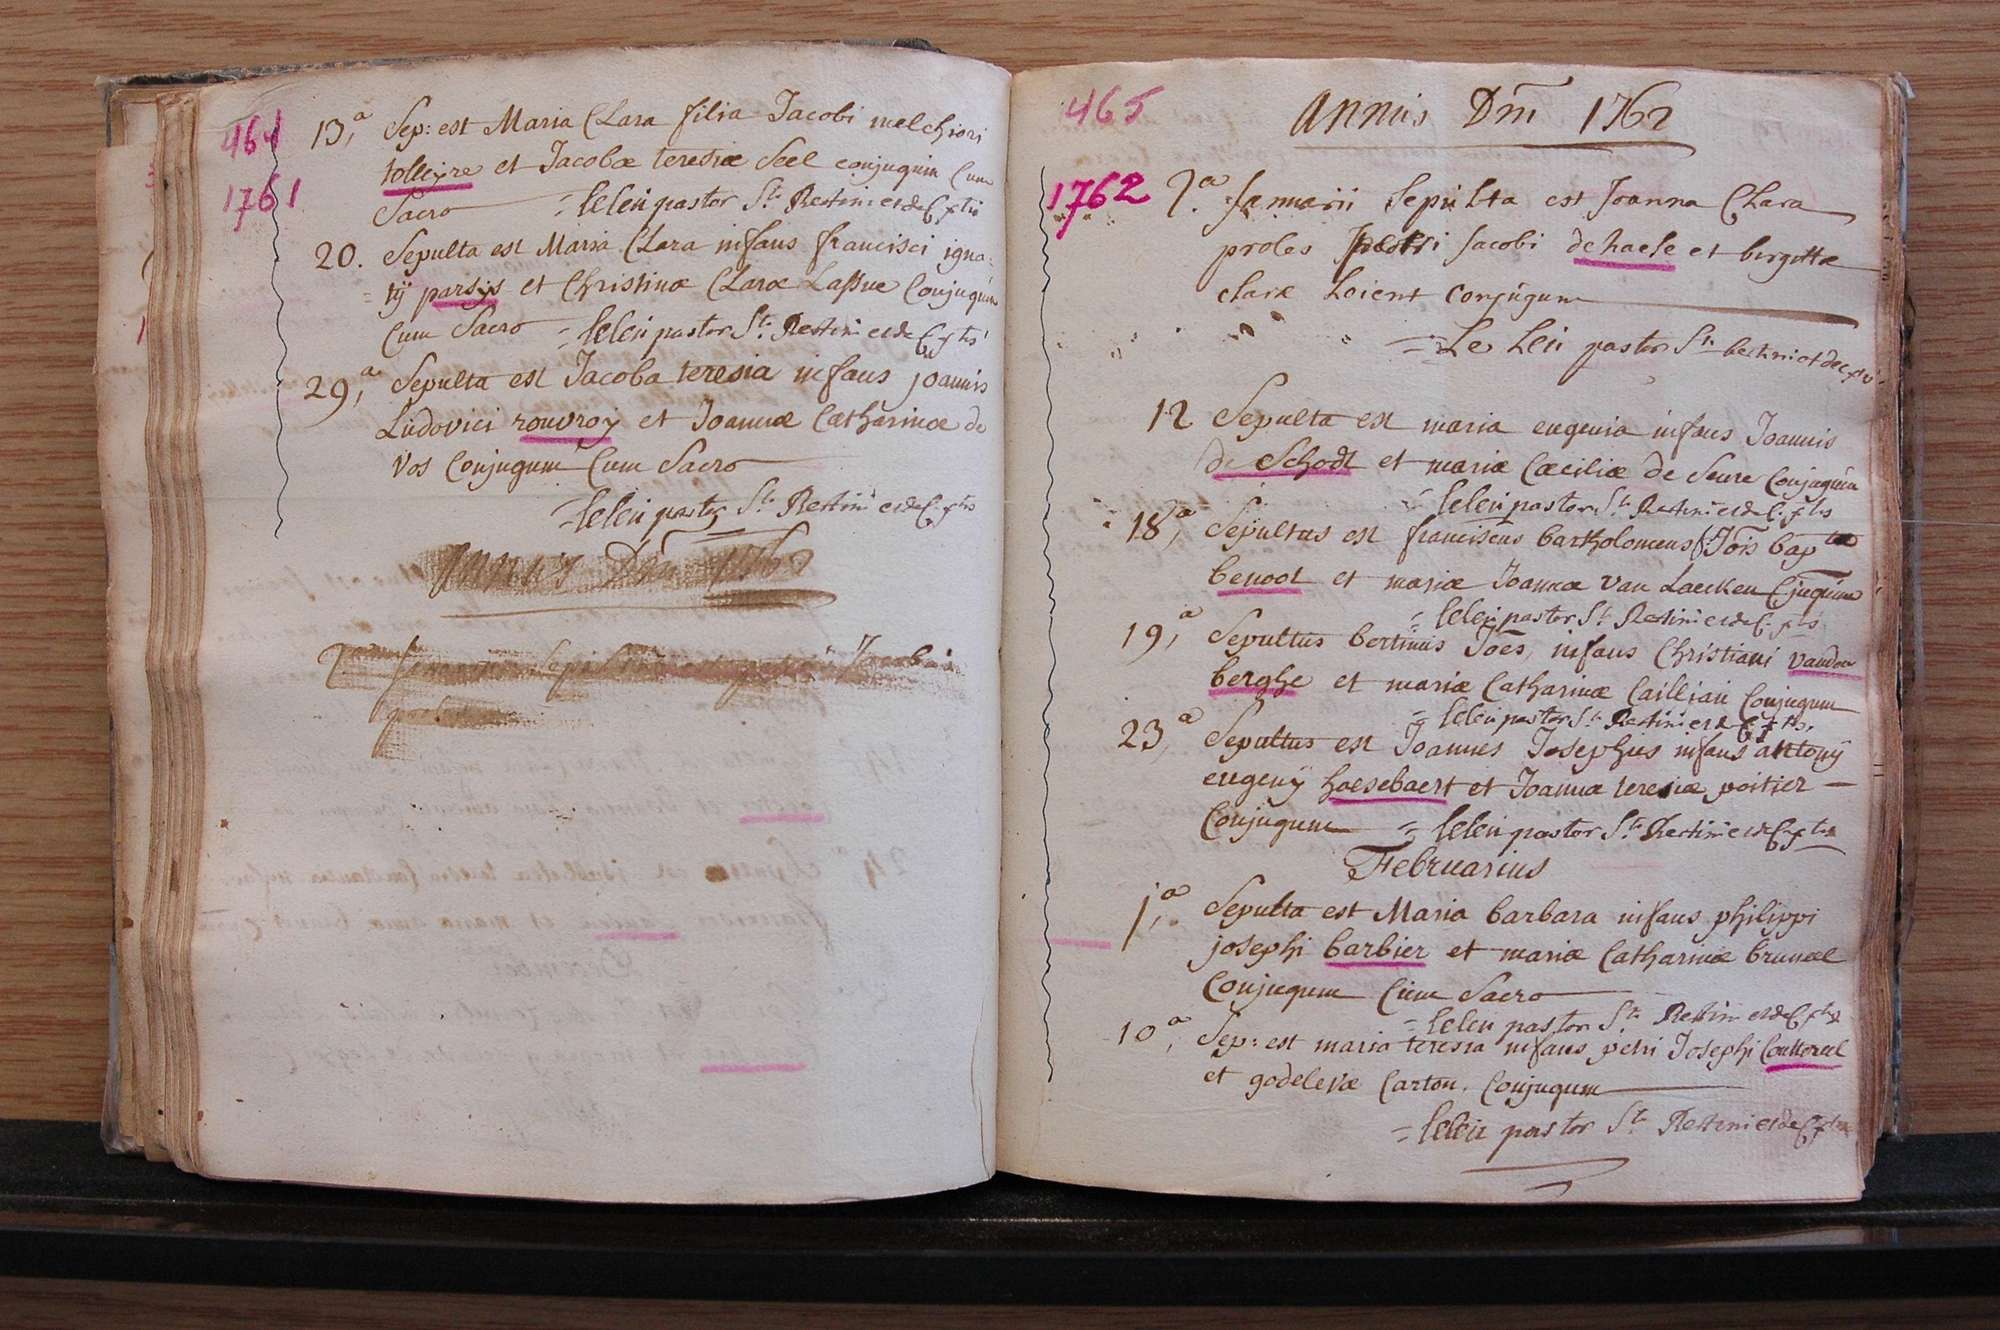 464
1761
13,a Sep: est Maria Clara filia Jacobi melchiori
tolleyre et Jacobæ teresiæ Seel conjugum Cum
Sacro = leleu pastor Sti Bertini et de C. xtis
20. Sepulta est Maria Clara infans francisci igna=
=tij parsijs et Christinæ Claræ Conjugum
Cum Sacro = leleu pastor Sti Bertini et de C. xtis
29,a Sepulta est Jacoba teresia infans joannis
Ludovici rouvroy et Joannæ Catharinæ de
Vos Conjugum Cum Sacro
=leleu pastor Sti Bertini et de C. xtis
Annus Dni 1762
465
Annus Dni 1762
1762
7.a Januarii Sepulta est Joanna Clara
proles petri Jacobi dehaese et birgittæ
claræ Loient Conjugum
= Le Leu pastor Sti bertini et de C. xti
12 Sepulta est maria eugenia infans Joannis
de Schodt et mariæ Cæciliæ de Seure Conjugum
= leleu pastor Sti Bertini et de C. xtis
18,a Sepultus est franciscus bartholomeus Jois baptæ
benoot et mariæ Joannæ van Laecken Cjugum
= leleu pastor Sti Bertini et de C. xtis
19,a Sepultus bertinus Joes, infans Christiani vanden
berghe et mariæ Catharinæ Cailliau Conjugum
= leleu pastor Sti Bertini et de C. xtis.
23,a Sepultus est Joannes Josephus infans antonij
eugenij hoesebaert et Joannæ teresiæ poitier
Conjugum = leleu pastor Sti Bertini et de C. xtis
Februarius
1,a Sepulta est Maria barbara infans philippi
josephi barbier et mariæ Catharinæ bruneel
Conjugum Cum Sacro
= leleu pastor Sti Bertini et de C. xtis
10,a Sep: est maria teresia infans petri Josephi Couttereel
et godelevæ Carton. Conjugum
= leleu pastor Sti Bertini et de C. xtis